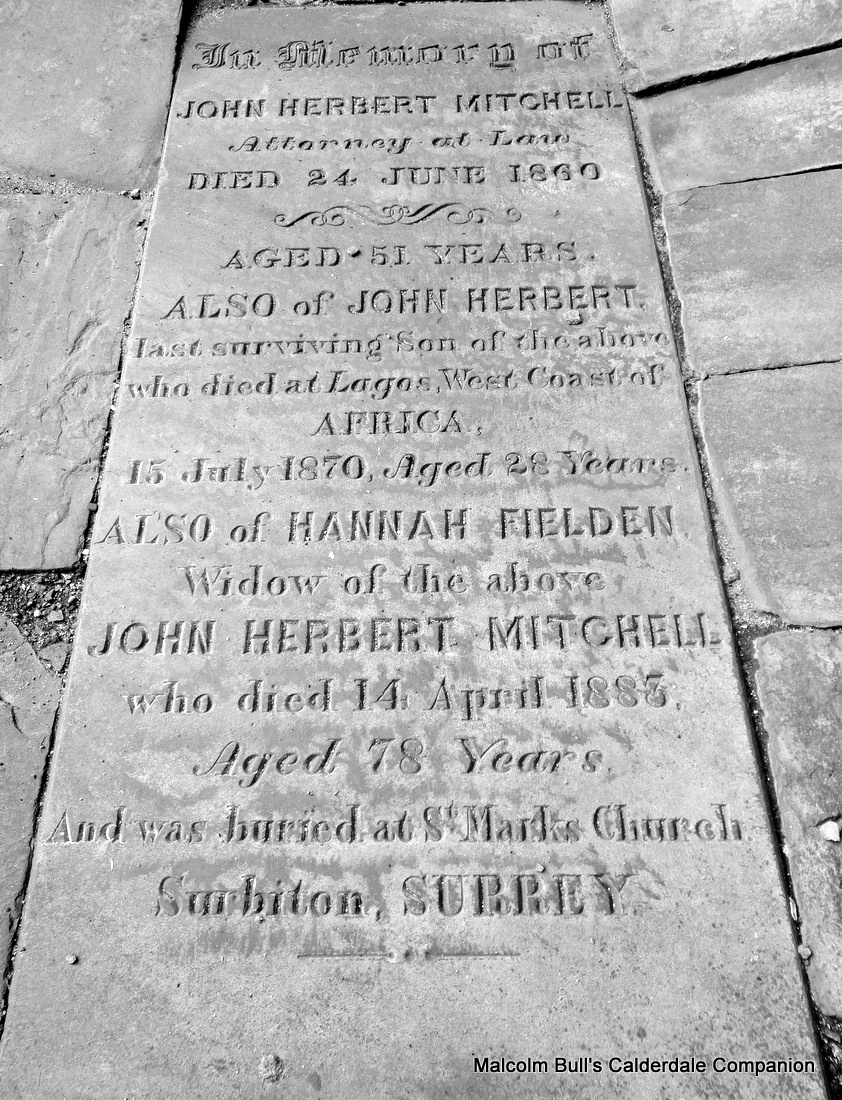 In Memory of
JOHN HERBERT MITCHELL
Attorney at Law
DIED 24 JUNE 1860
AGED 51 YEARS.
ALSO of JOHN HERBERT,
last surviving Son of the above
who died at Lagos, West Coast of
AFRICA,
15 July 1870, Aged 28 Years.
ALSO of HANNAH FIELDEN,
Widow of the above
JOHN HERBERT MITCHELL
who died 14 April 1883,
Aged 78 Years,
And was buried at St Marks Church
Surbiton, SURREY.
Malcolm Bull's Calderdale Companion